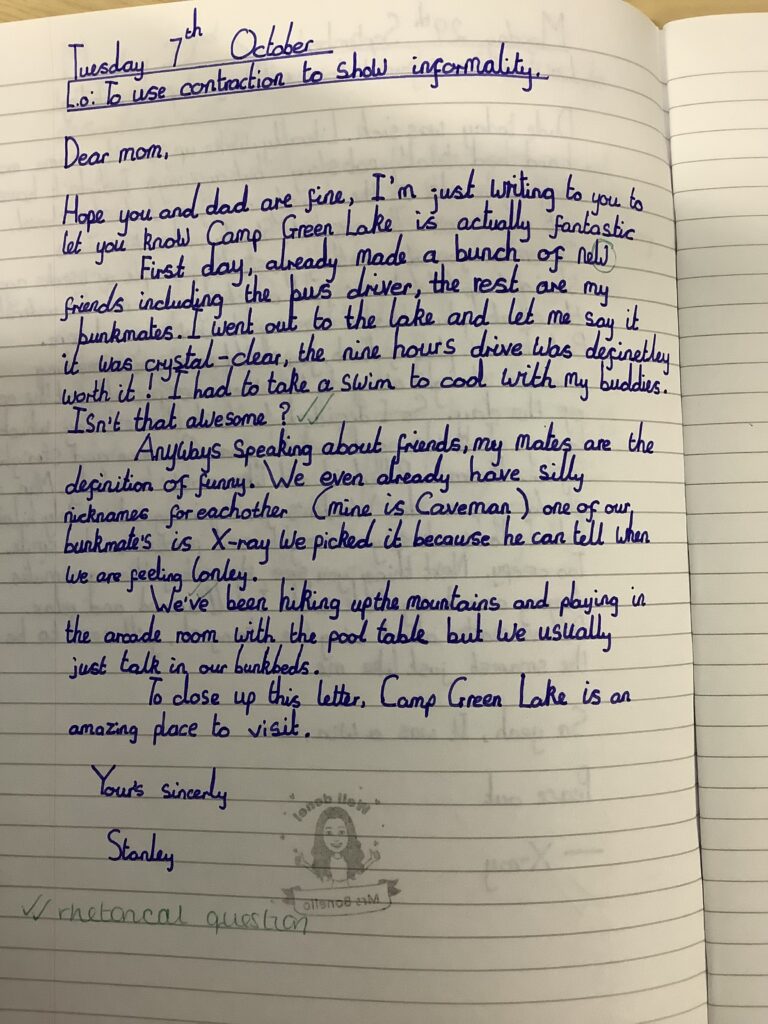 Tuesday 7th October
L.o: To use contraction to show informality.
Dear mom,
Hope you and dad are fine, I'm just writing to you to
let you know Camp Green Lake is actually fantastic
First day, already made a bunch of new
friends including the bus driver, the rest are my
bunkmates. I went out to the lake and let me say it
it was crystal-clear, the nine hours drive was definetley
worth it! I had to take a swim to cool with my buddies.
Isn't that awesome?
Anyways speaking about friends, my mates are the
definition of funny. We even already have silly
nicknames for eachother (mine is Caveman) one of our
bunkmate's is X-ray We picked it because he can tell when
we are feeling lonley.
We've been hiking up the mountains and playing in
the arcade room with the pool table but we usually
just talk in our bunkbeds.
To close up this letter, Camp Green Lake is an
amazing place to visit.
Your's sincerly
Stanley
"Well done!"
Mrs Bonello
✓✓ rhetorical question